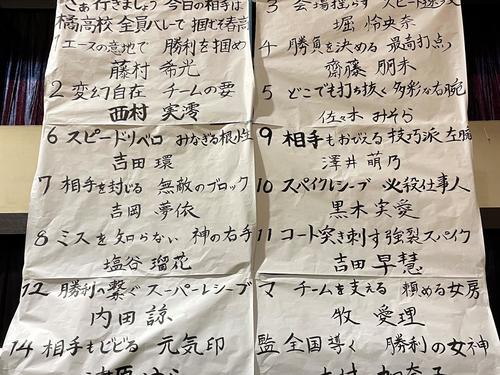 さあ行きましょう 今日の相手は
橘高校 全員バレで 掴むぞ春高
1 エースの意地で 勝利を掴め
藤村 希光
2 変幻自在 チームの要
西村 実澪
3 会場揺らす スピード速攻
堀 怜央奈
4 勝負を決める 最高打点
齋藤 朋未
5 どこでも打ち抜く 多彩な右腕
佐々木 みそら
6 スピードリベロ みなぎる根性
吉田 環
7 相手を封じる 無敵のブロック
吉岡 夢依
8 ミスを知らない 神の右手
塩谷 瑠花
9 相手もおびえる 技巧派左腕
澤井 萌乃
10 スパイクレシーブ 必殺仕事人
黒木 実愛
11 コート突き刺す 強裂スパイク
吉田 早慧
12 勝利へ繋ぐ スーパーレシーブ
内田 諒
マ チームを支える 頼める女房
牧 愛理
14 相手もビビる 元気印
監 全国導く 勝利の女神